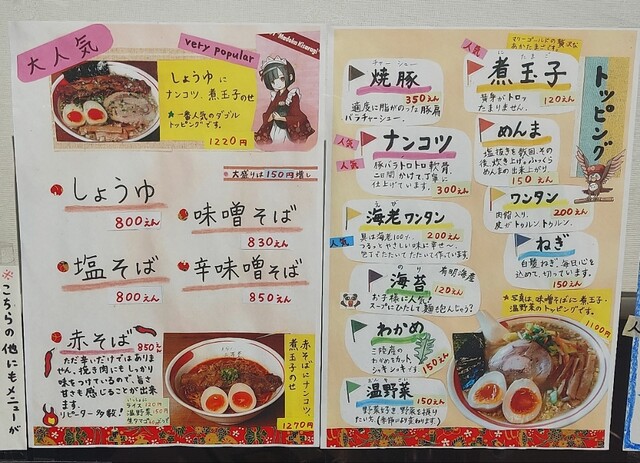 大人気
very popular
Madoka Kisaragi
しょうゆに
ナンコツ、煮玉子のせ
★一番人気のダブル
トッピングです。
1220円
★大盛りは150円増し
しょうゆ
800えん
味噌そば
830えん
塩そば
800えん
辛味噌そば
850えん
赤そば
850えん
ただ辛いだけではありま
せん。挽き肉にもしっかり
味をつけているので、旨さ
甘さも感じることが出来
ます。
リピーター多数!
赤そばにナンコツ、
煮玉子のせ
1270円
※こちらの他にもメニューが
トッピング
チャーシュー
焼豚
350えん
適度に脂がのった豚肩
バラチャーシュー。
マリーゴールドの贅沢な
あかたまごです。
人気
にたまご
煮玉子
120えん
黄身がトロッ
たまりません。
人気
人気
ナンコツ
豚バラトロトロ軟骨。
二日間かけて丁寧に
仕上げています。
300えん
めんま
塩抜きを数回、その
後、炊き上げ。ふっくら
めんまの出来上がり。
150えん
海老ワンタン
200えん
具は海老100%。
つるっとやさしい味に幸せ〜。
包丁でたたいてたたいて作っています
人気
ワンタン
200えん
肉餡入り。
皮がトゥルントゥルン。
のり
海苔
有明海産
120えん
お子様に人気!
スープにひたして麺も包んじゃう?
ねぎ
白髪ねぎ。毎日心を
込めて、切っています。
150えん
わかめ
三陸産の
わかめをカット。
シャキシャキです。
150えん
おんやさい
温野菜
150えん
野菜好き、野菜を摂り
たい方。(季節により変わります。)
★写真は、味噌そばに煮玉子・
温野菜のトッピングです。
1100円